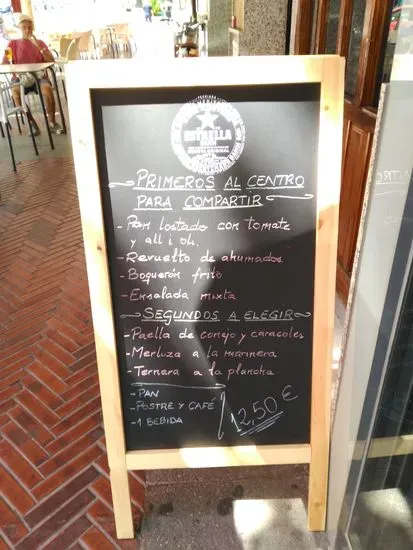 ESTRELLA
PRIMEROS AL CENTRO
PARA COMPARTIR
- Pan tostado con tomate
y all i oli.
- Revuelto de ahumados
- Boquerón frito
- Ensalada mixta
SEGUNDOS A ELEGIR
- Paella de conejo y caracoles
- Merluza a la marinera
- Ternera a la plancha
- PAN
- POSTRE Y CAFÉ
- 1 BEBIDA
12,50 €